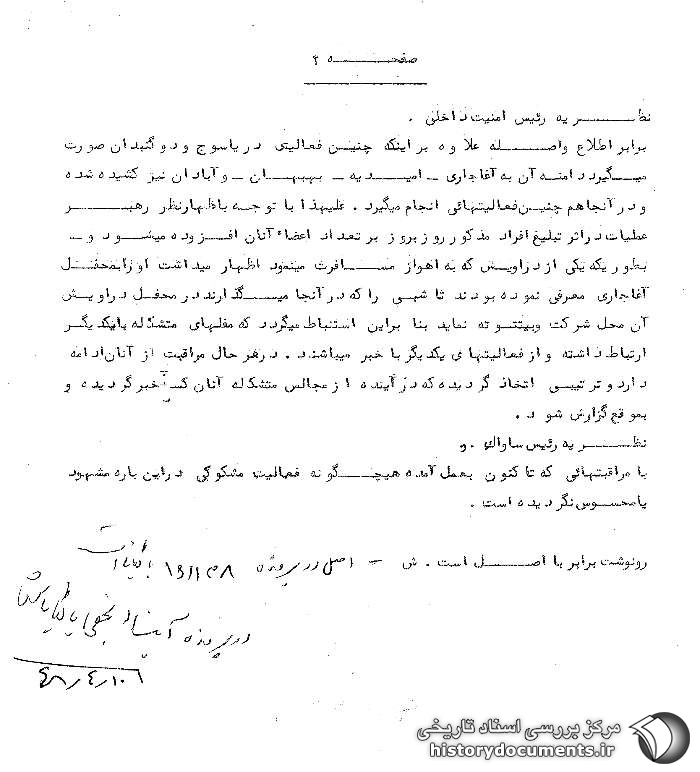 صفحه ۲
نظریه رئیس امنیت داخلی .
برابر اطلاع واصله علاوه بر اینکه چنین فعالیتی در یاسوج و دوگنبدان صورت
میگیرد دامنه آن به آغاجاری ـ امیدیه ـ بهبهان ـ و آبادان نیز کشیده شده
و در آنجا هم چنین فعالیتهائی انجام میگیرد . علیهذا با توجه باظهارنظر رهبر
عملیات در اثر تبلیغ افراد مذکور روز بروز بر تعداد اعضاء آنان افزوده میشود و ـ
بطوریکه یکی از دراویش که به اهواز مسافرت مینمود اظهار میداشت او را بمحفل
آغاجاری معرفی نموده بودند تا شبی را که در آنجا میگذارند در محفل دراویش
آن محل شرکت و بیتوته نماید بنا براین استنباط میگردد که محفلهای متشکله بایکدیگر
ارتباط داشته و از فعالیتهای یکدیگر با خبر میباشند . در هر حال مراقبت از آنان ادامه
دارد و ترتیبی اتخاذ گردیده که در آینده از مجالس متشکله آنان کسب خبر گردیده و
بموقع گزارش شود .
نظریه رئیس ساواک . و
با مراقبتهائی که تا کنون بعمل آمده هیچگونه فعالیت مشکوکی در این باره مشهود
یا محسوس نگردیده است .
رونوشت برابر با اصل است . ش ـ اصل در پرونده
در پرونده
۴۸/۴/۱۰
مرکز بررسی اسناد تاریخی
historydocuments.ir